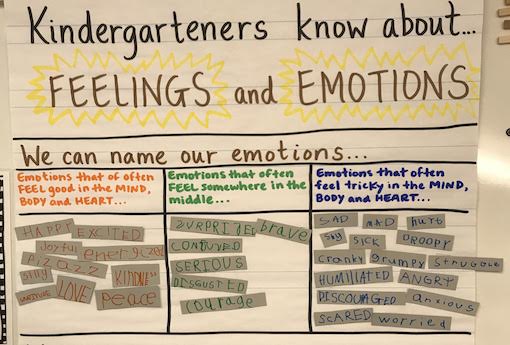 Kindergarteners know about...
FEELINGS and EMOTIONS
We can name our emotions...
Emotions that of often
FEEL good in the MIND,
BODY and HEART...
HAPPY EXCITED
Joyful energized
Pizazz
silly KINDNESS
LOVE Peace
Emotions that often
FEEL somewhere in the
middle...
SURPRISED brave
CONFUSED
SERIOUS
DISGUSTED
courage
Emotions that often
feel tricky in the MIND,
BODY and HEART...
SAD MAD hurt
Shy SICK DROOPY
Cranky Grumpy struggle
HUMILIATED ANGRY
DISCOURAGED anxious
SCARED worried